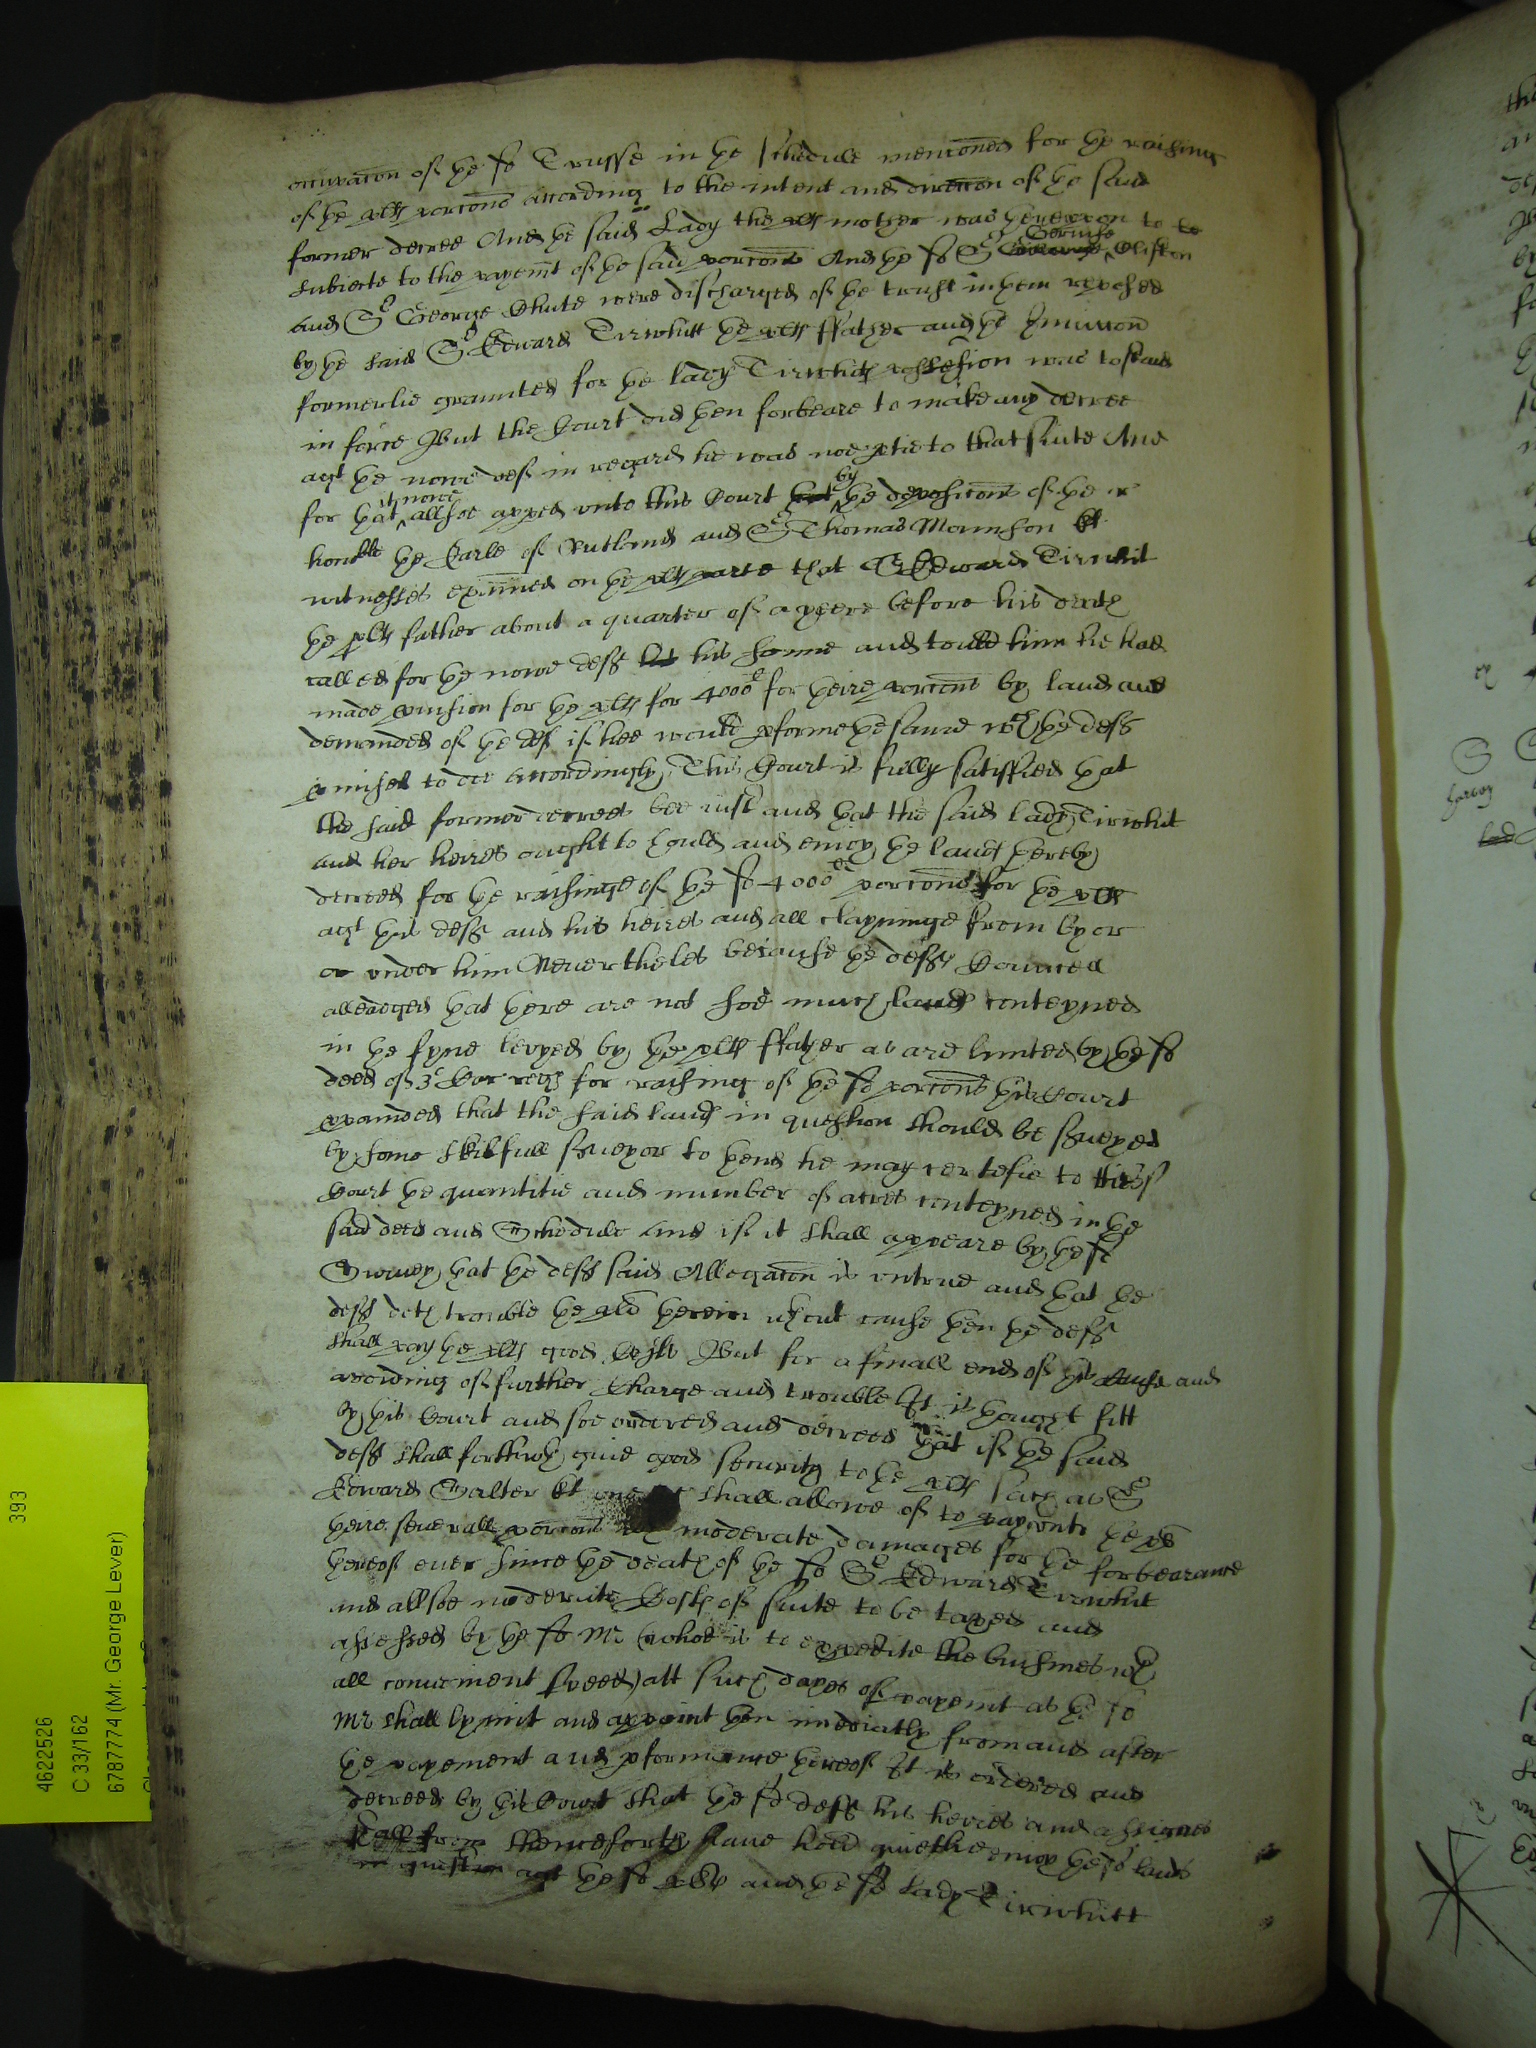 occupacon of þe sd Trusse in þe schedule menconed for þe raising
of þe plts porcons according to the intent and direccon of þe said
former decree And þe said Lady the plts mother was þerevpon to to
subiecte to the paymt of þe said porcons And þe sd Sr George Gervise Clifton
and Sr George Chute were discharged of þe trust in þem reposed
by þe said Sr Edward Tirwhitt þe plts ffather and þe Iniunccon
formerlie graunted for þe lady Tirwhits possession was to stand
in force But the Court did þen forbeare to make any decree
agt þe nowe deft in regard he was noe ptie to that suite And
for þat it nowe allsoe appred vnto this Court þat by þe deposicons of þe r
honble þe Earle of Rutland and Sr Thomas Mounson kt
witnesses exãmined on þe plts parte that Sr Edward Tirwhit
þe plts father about a quarter of a yeere before his death
called for þe nowe deft his sonne and tould him he had
made pvision for þe plts for 4000l for þeire porcons by land and
demanded of þe deft if hee would pforme þe same wch þe deft
pmised to doe accordingly, This Court is fully satisfied þat
the said former decrees bee iust and þat the said lady Tirwhit
and her heires ought to hould and enioy þe lands þereby
decreed for þe raisinge of þe sd 4000l porcons for þe plts
agt þis deft and his heires and all clayminge from by or
or vnder him Neverthelesse because þe defts Councell
alleadged þat þere are not soe much lands conteyned
in þe fyne levyed by þe plts ffather as are limited by þe sd
deed of 3o Car regs for raising of þe sd porcons þis Court
pounded that the said lands in question should be surveyed
by some skilfull surveyor to þend he may certefie to this
Court þe quantitie and number of acres conteyned in þe
said deed and Schedule And if it shall appeare by þe sd
Survey þat þe defts said Allegacon is vntrue and þat þe
deft doth trouble þe plts þerein wthout cause þen þe deft
shall pay þe plts good Costs But for a finall end of þis cause and
avoiding of further Charge and trouble It is þought fitt
by þis Court and soe ordered and decreed þat if þe said
deft shall forthwth give good security to þe plts such as Sr
Edward Salter kt one shall allowe of to pay vnto þe plts
þeire severall porcons wth moderate damages for þe forbearance
þereof ever since þe death of þe sd Sr Edward Tirwhit
and allsoe moderate Costs of suite to be taxed and
assessed by þe sd Mr (whoe is to expedite the buisines wth
all convenient speed) att such dayes of paymt as þe sd
Mr shall lymit and appoint þen imediatly from and after
þe payment and pformance þereof It is ordered and
decreed by þis Court that þe sd deft his heires and assignes
shall from thenceforth have hold quietlie enioy þe sd lands
in question agt þe sd plts and þe sd Lady Tirwhitt
393
4622526
C 33/162
6787774 (Mr. George Lever)